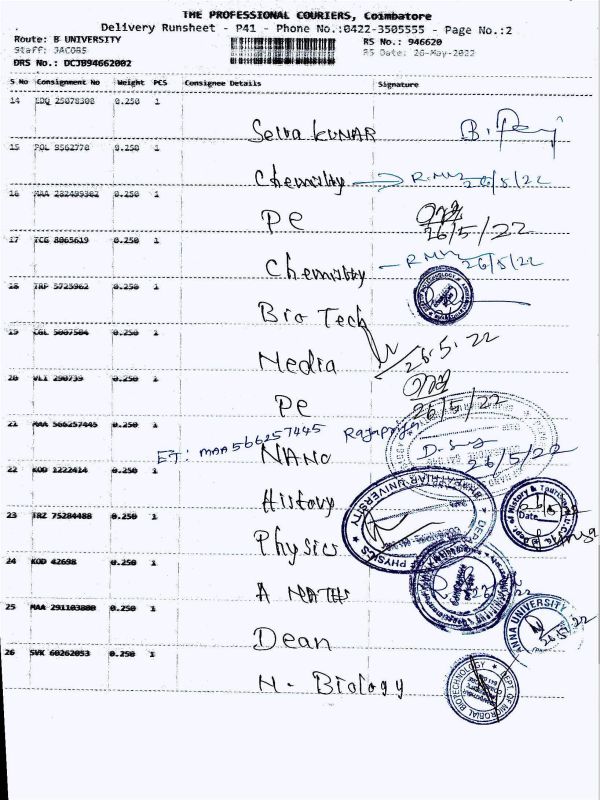 THE PROFESSIONAL COURIERS, Coimbatore
Delivery Runsheet - P41 - Phone No.:0422-3505555 - Page No.:2
Route: B UNIVERSITY RS No.: 946620
Staff: JACOBS RS Date: 26-May-2022
DRS No.: DCJB94662002
S No Consignment No Weight PCS Consignee Details Signature
14 EDQ 25078308 0.250 1
Selva KUMAR B.
15 POL 9562770 0.250 1
Chemistry 26/5/22
16 MAA 282499302 0.250 1
PE 26/5/22
17 TCG 8065619 0.250 1
Chemistry 26/5/22
18 TRP 5725962 0.250 1
Bio Tech
19 CGL 5087504 0.250 1
Media 26.5.22
20 VLI 290739 0.250 1
PE 26/5/22
21 MAA 566257445 0.250 1
ET: MAA566257445
NANO 26/5/22
22 KOD 1222414 0.250 1
History Dept. of History & Tourism
Date
23 TRZ 75284488 0.250 1
Physics DEPT OF PHYSICS BHARATHIAR UNIVERSITY
24 KOD 42698 0.250 1
A MATHS
25 MAA 291103880 0.250 1
Dean ANNA UNIVERSITY 26/5/22
26 SVK 60262053 0.250 1
M - Biology DEPT. OF MICROBIAL BIOTECHNOLOGY